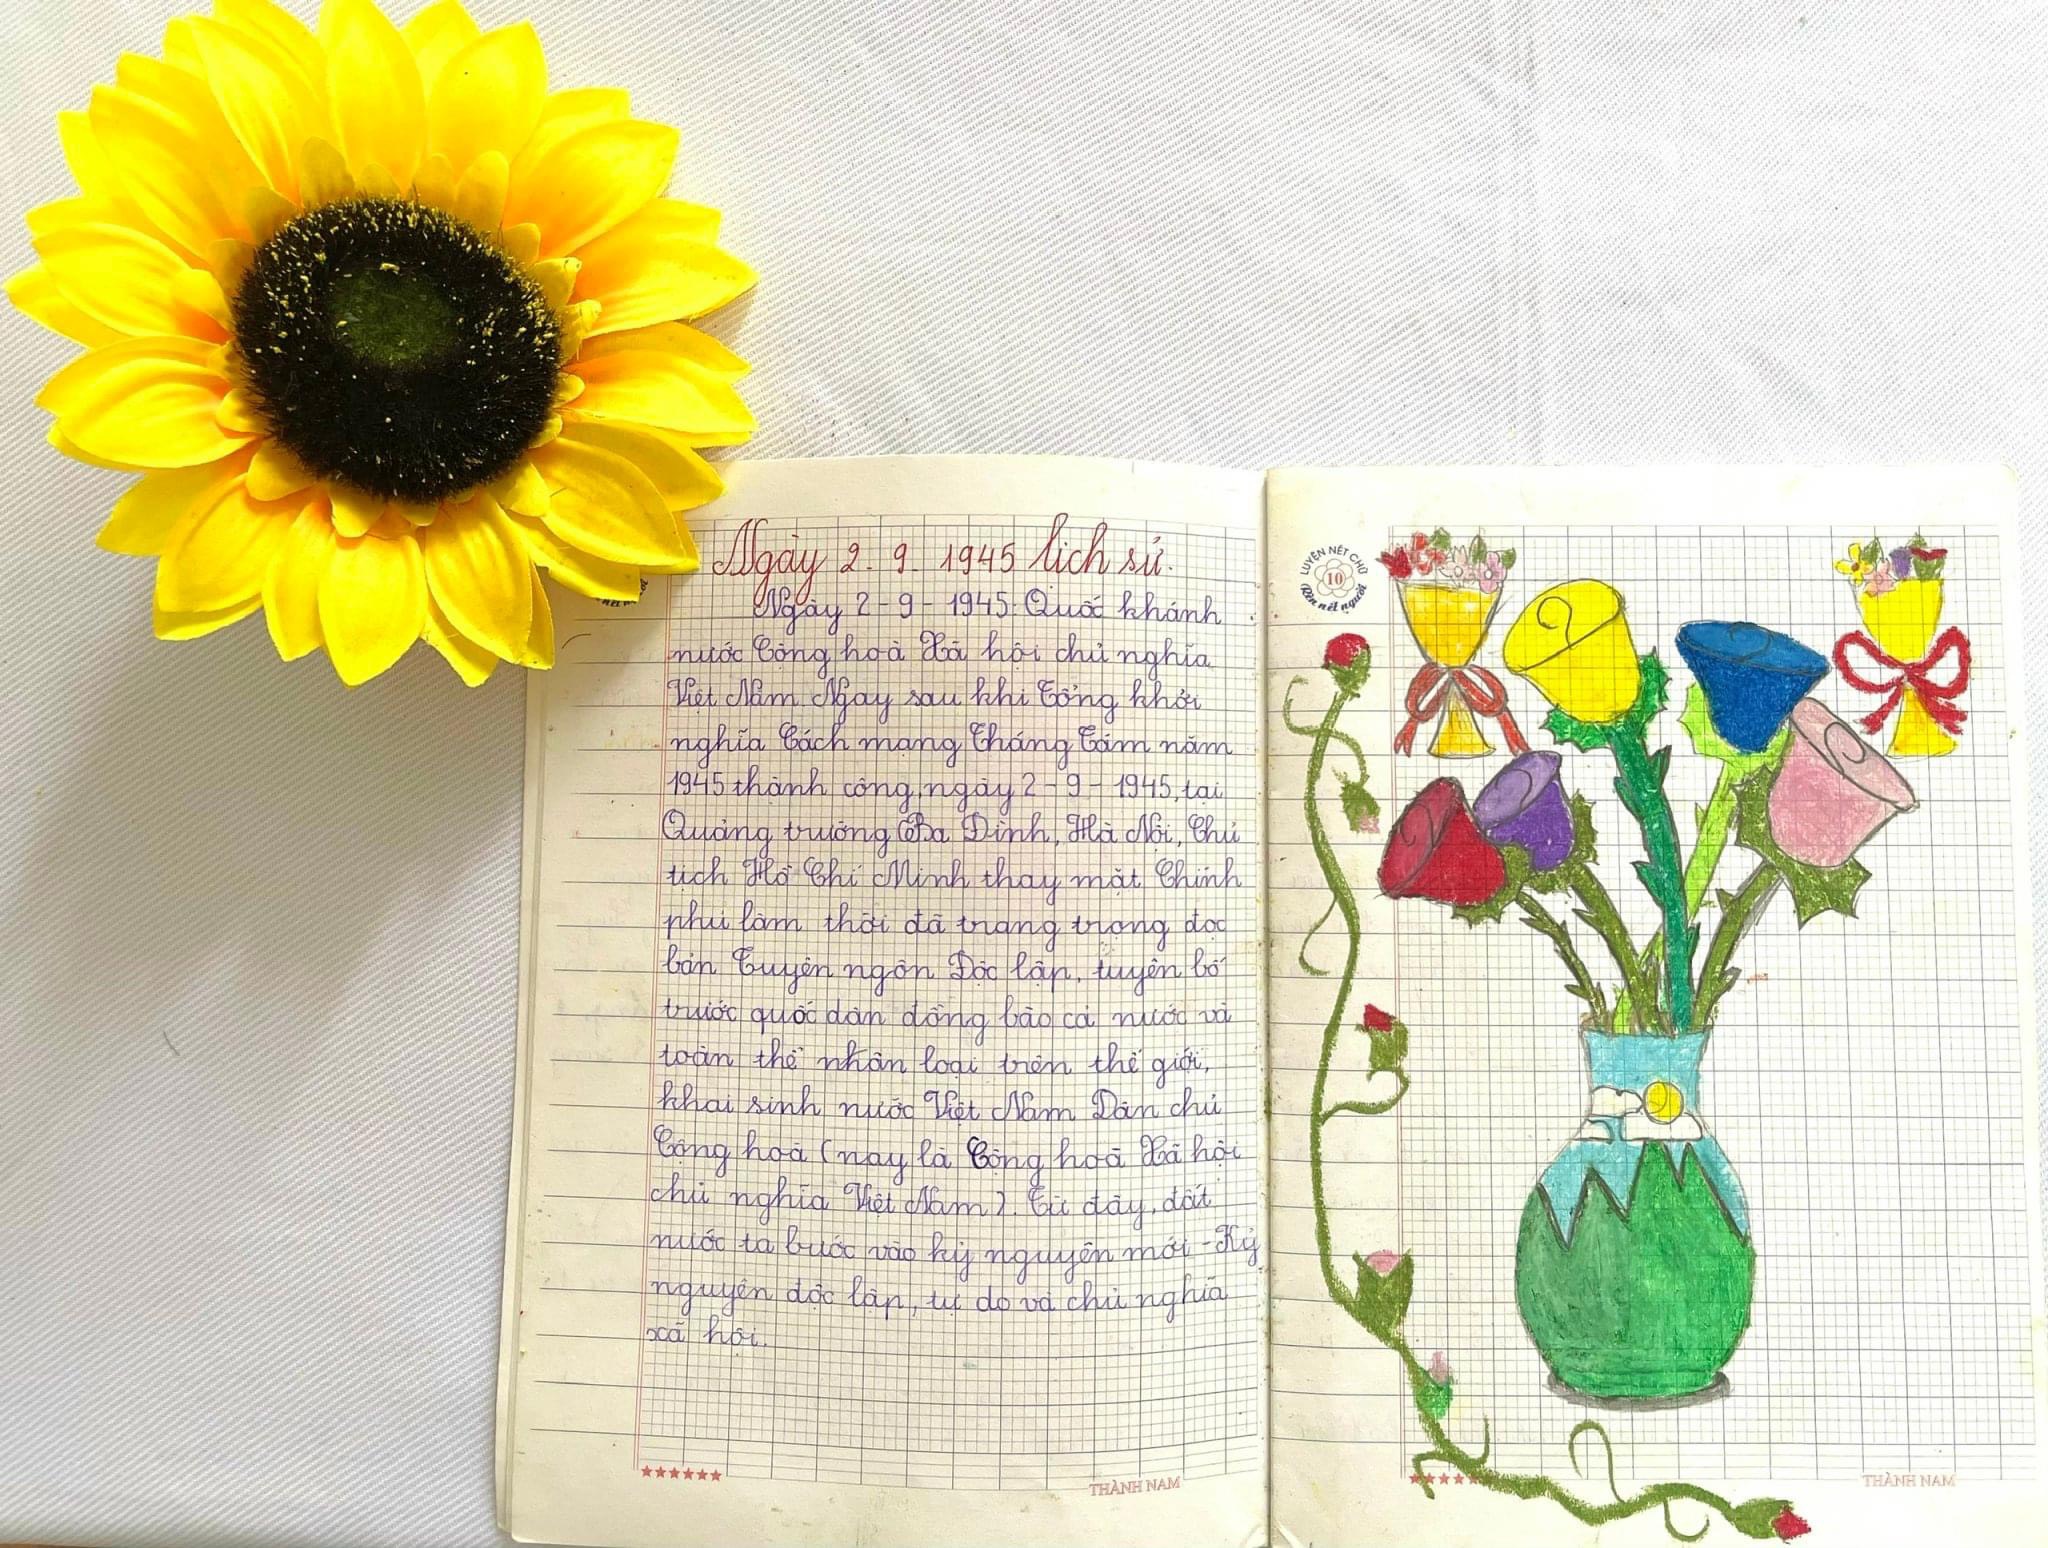 Ngày 2-9-1945 lịch sử.
Ngày 2-9-1945: Quốc khánh
nước Cộng hoà Xã hội chủ nghĩa
Việt Nam. Ngay sau khi Tổng khởi
nghĩa Cách mạng Tháng Tám năm
1945 thành công, ngày 2-9-1945, tại
Quảng trường Ba Đình, Hà Nội, Chủ
tịch Hồ Chí Minh thay mặt Chính
phủ lâm thời đã trang trọng đọc
bản Tuyên ngôn Độc lập, tuyên bố
trước quốc dân đồng bào cả nước và
toàn thể nhân loại trên thế giới,
khai sinh nước Việt Nam Dân chủ
Cộng hoà (nay là Cộng hoà Xã hội
chủ nghĩa Việt Nam). Từ đây, đất
nước ta bước vào kỷ nguyên mới - Kỷ
nguyên độc lập, tự do và chủ nghĩa
xã hội.
THÀNH NAM
LUYỆN NÉT CHỮ
10
Rèn nết người
THÀNH NAM